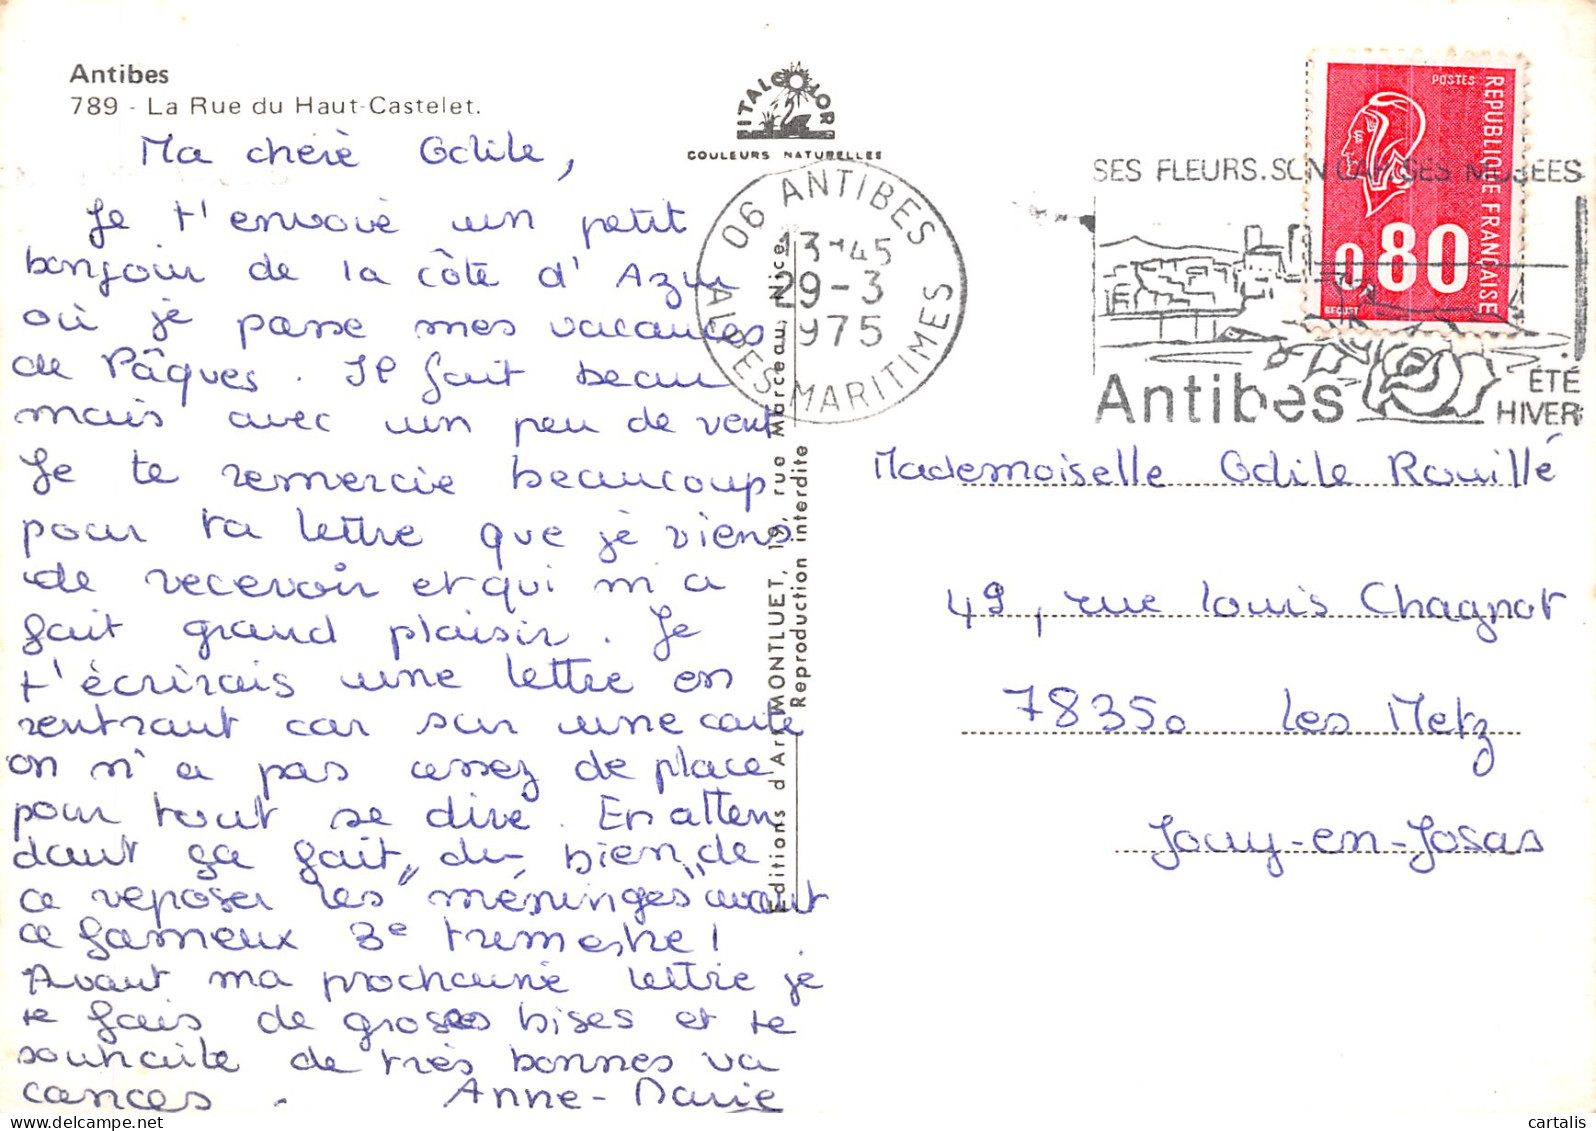 Antibes
789 - La Rue du Haut-Castelet.
ITALCOLOR
COULEURS NATURELLES
Ma chère Odile,
Je t'envoie un petit
bonjour de la côte d'Azur
où je passe mes vacances
de Pâques. Il fait beau
mais avec un peu de vent
Je te remercie beaucoup
pour ta lettre que je viens
de recevoir et qui m'a
fait grand plaisir. Je
t'écrirais une lettre en
rentrant car sur une carte
on n'a pas assez de place
pour tout se dire. En atten
dant ça fait du bien de
ce reposer les "méninges" avant
ce fameux 3e trimestre!
Avant ma prochaine lettre je
te fais de grosses bises et te
souhaite de très bonnes va
cances.
Anne-Marie
Editions d'Art MONTLUET, 19, rue Marceau, Nice
Reproduction interdite
06 ANTIBES
13H45
29-3
1975
ALPES-MARITIMES
SES FLEURS. SON CAP. SES MUSEES
Antibes
ÉTÉ
HIVER
POSTES
REPUBLIQUE FRANCAISE
0,80
BEQUET
Mademoiselle Odile Rouillé
49, rue Louis Chagnot
78350 Les Metz
Jouy-en-Josas
cartalis
www.delcampe.net